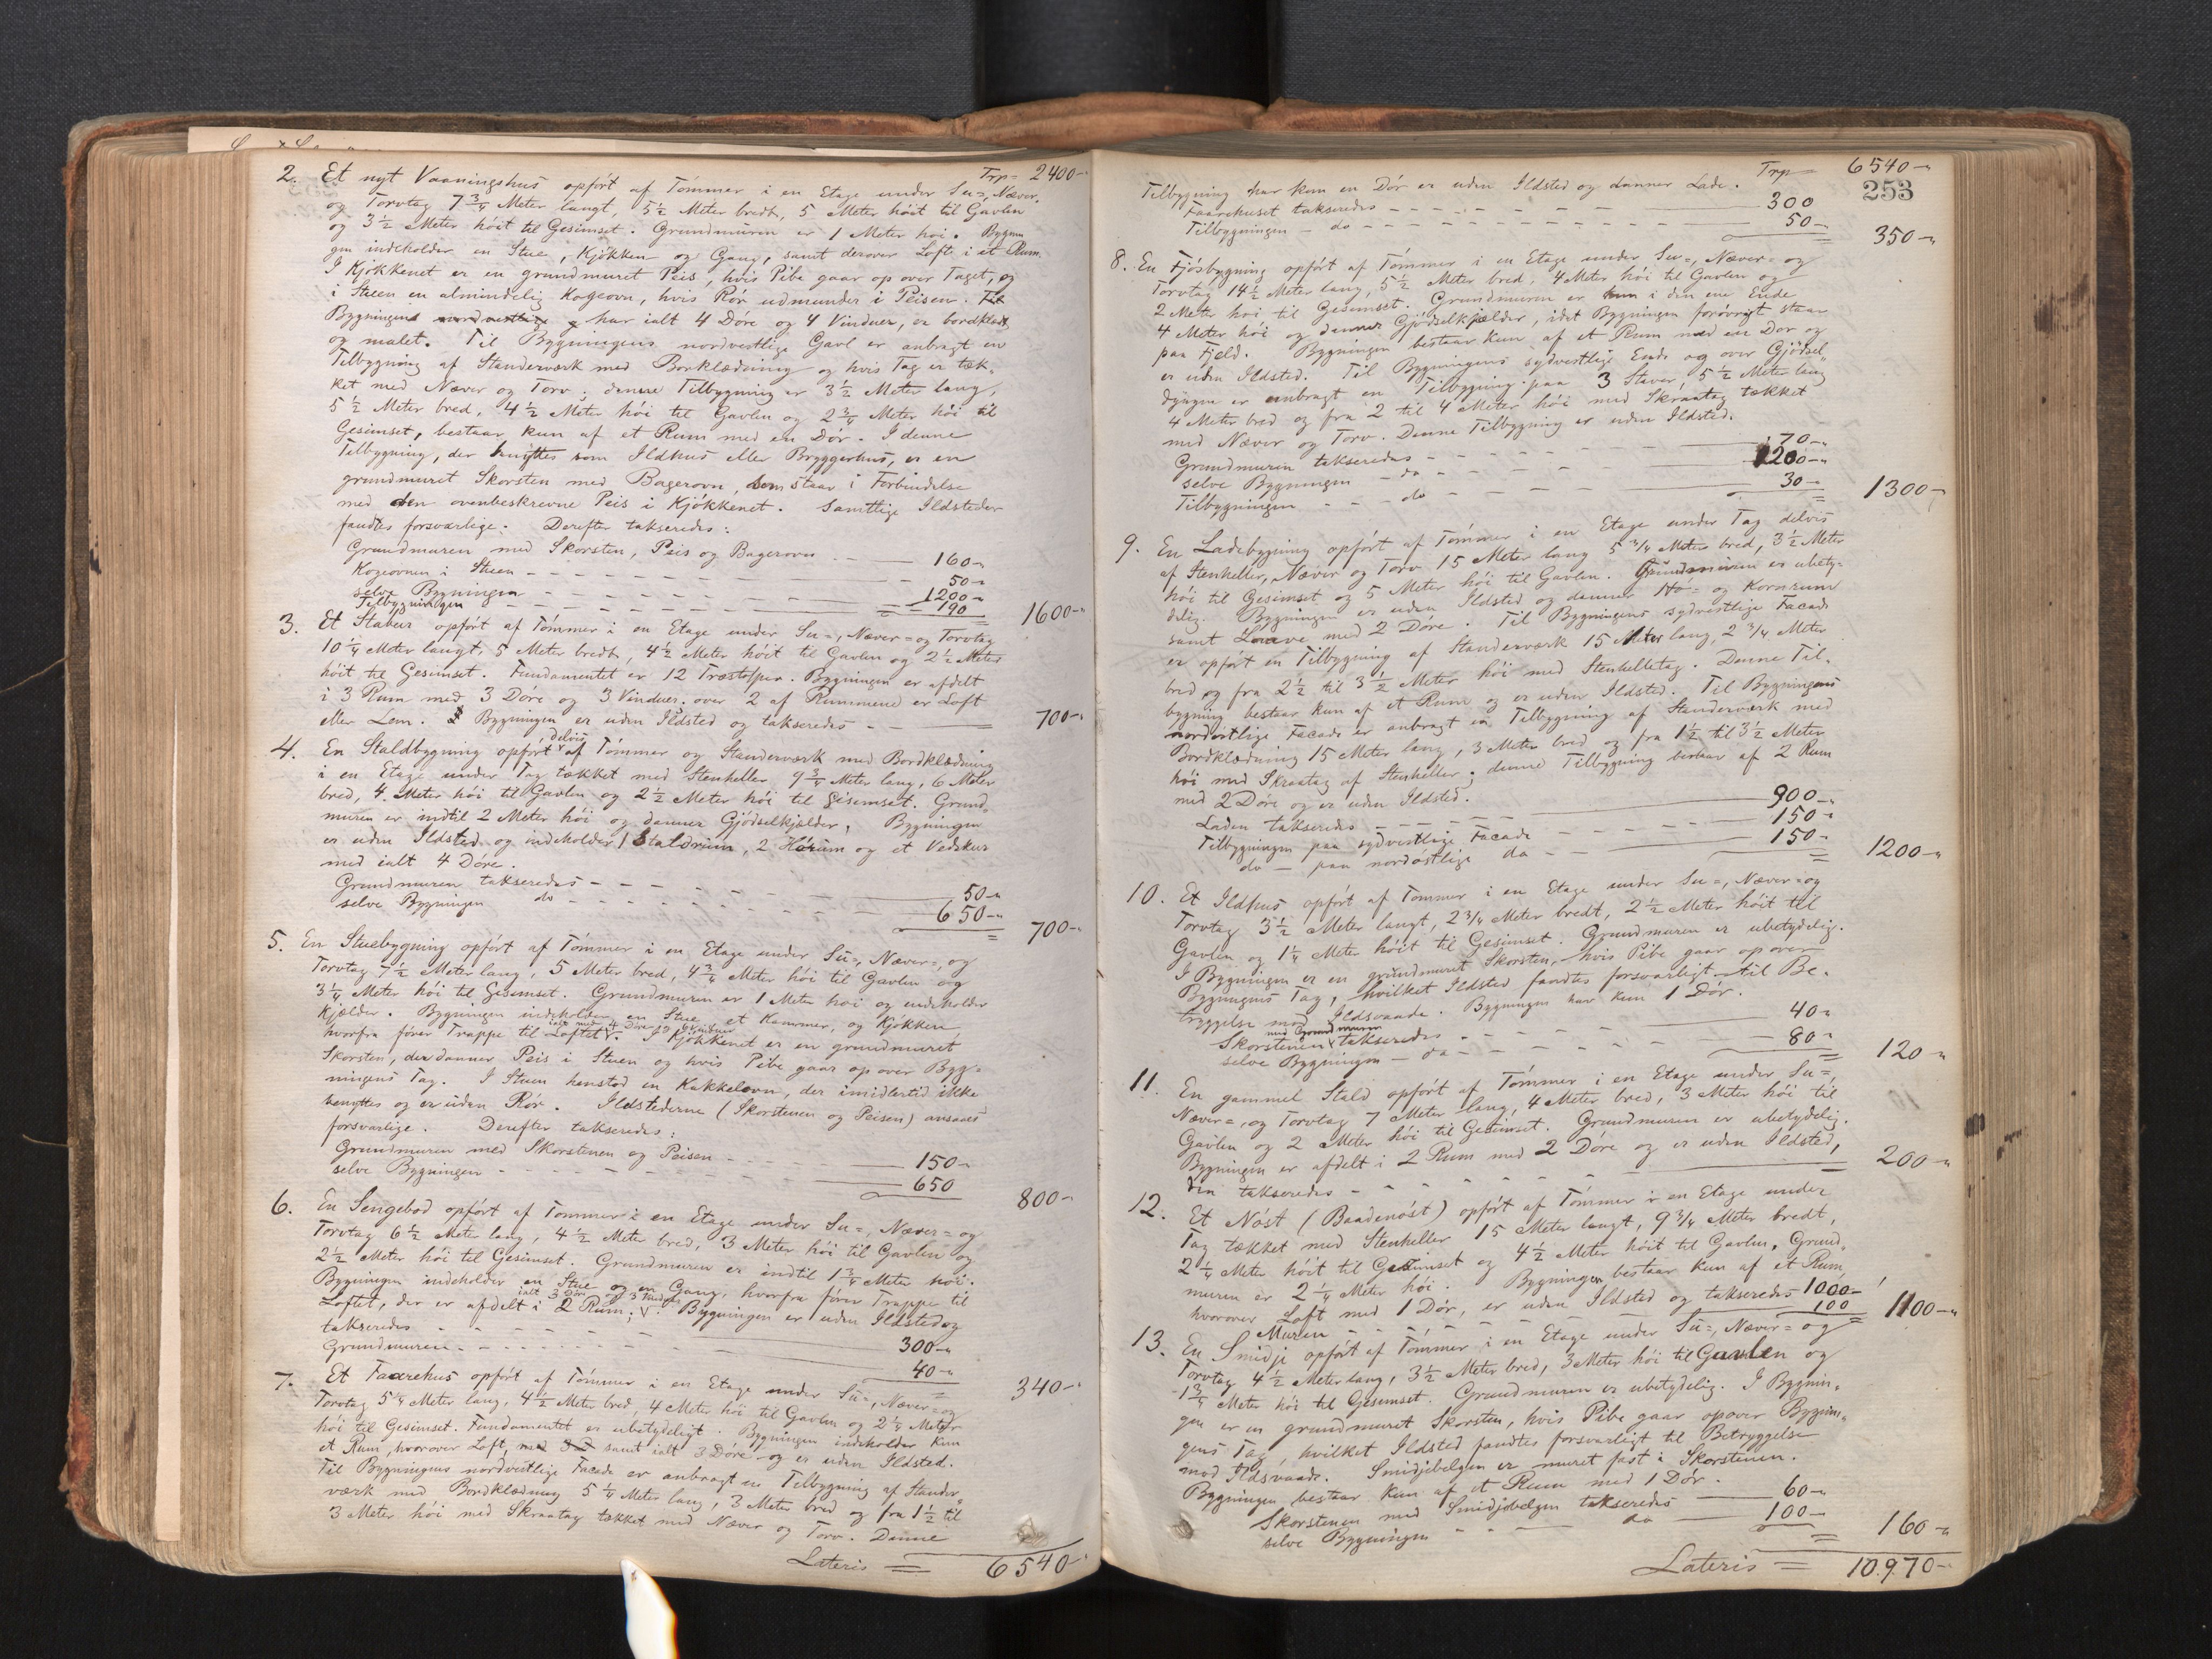 Trp= 2400-"
2. Et nyt Vaaningshus opført af Tømmer i en Etage under Su=, Næver=
og Torvtag 7 3/4 Meter langt, 5 1/2 Meter bredt, 5 Meter høit til Gavlen
og 3 1/2 Meter høit til Gesimset. Grundmuren er 1 Meter høi. Bygnin
gen indeholder en Stue, Kjøkken og Gang, samt derover Loft i et Rum.
I Kjøkkenet er en grundmuret Peis, hvis Pibe gaar op over Taget, og
i Stuen en almindelig Kogeovn, hvis Rør udmunder i Peisen. Til
Bygningens nordvestlige har ialt 4 Døre og 4 Vinduer, er bordklædt
og malet. Til Bygningens nordvestlige Gavl er anbragt en
Tilbygning af Standerværk med Borklædning og hvis Tag er tæk-
ket med Næver og Torv; denne Tilbygning er 3 1/2 Meter lang,
5 1/2 Meter bred, 4 1/2 Meter høi til Gavlen og 2 3/4 Meter høi til
Gesimset, bestaar kun af et Rum med en Dør. I denne
Tilbygning, der benyttes som Ildhus eller Bryggerhus, er en
grundmuret Skorsten med Bagerovn, som staar i Forbindelse
med den ovenbeskrevne Peis i Kjøkkenet. Samtlige Ildsteder
fandtes forsvarlige. Derefter takseredes:
Grundmuren med Skorsten, Peis og Bagerovn - 160-"
Kogeovnen i Stuen - - - 50-"
selve Bygningen - - - 1200-"
Tilbygningen - - - 190 = 1600-"
3. Et Stabur opført af Tømmer i en Etage under Su=, Næver= og Torvtag
10 1/4 Meter langt, 5 Meter bredt, 4 1/2 Meter høit til Gavlen og 2 1/2 Meter
høit til Gesimset. Fundamentet er 12 Træstolper. Bygningen er afdelt
i 3 Rum med 3 Døre og 3 Vinduer, over 2 af Rummene er Loft
eller Lem. Bygningen er uden Ildsted og takseredes - = 700-"
4. En Staldbygning opført delvis af Tømmer og Standerværk med Bordklædning
i en Etage under Tag tækket med Stenheller, 9 3/4 Meter lang, 6 Meter
bred, 4 Meter høi til Gavlen og 2 1/2 Meter høi til Gesimset. Grund=
muren er indtil 2 Meter høi og danner Gjødselkjælder. Bygningen
er uden Ildsted og indeholder 1 Staldrum, 2 Hørum og et Vedskur
med ialt 4 Døre.
Grundmuren takseredes - - - 50-"
selve Bygningen do - - - 650-" = 700-"
5. En Stuebygning opført af Tømmer i en Etage under Su=, Næver=, og
Torvtag 7 1/2 Meter lang, 5 Meter bred, 4 3/4 Meter høi til Gavlen og
3 1/4 Meter høi til Gesimset. Grundmuren er 1 Meter høi og indeholder
Kjælder. Bygningen indeholder en Stue, et Kammer, og Kjøkken
ialt med 4 Døre og
hvorfra fører Trappe til Loftet. I Kjøkkenet er en grundmuret
Skorsten, der danner Peis i Stuen og hvis Pibe gaar op over Byg=
ningens Tag. I Stuen henstod en Kakkelovn, der imidlertid ikke
benyttes og er uden Rør. Ildstederne (Skorstenen og Peisen) ansaaes
forsvarlige. Derefter takseredes:
Grundmuren med Skorstenen og Peisen - - - 150-"
selve Bygningen - - - 650 800-"
6. En Sengebod opført af Tømmer i en Etage under Su=, Næver= og
Torvtag 6 1/2 Meter lang, 4 1/2 Meter bred, 3 Meter høi til Gavlen og
2 1/2 Meter høi til Gesimset. Grundmuren er indtil 1 3/4 Meter høi.
Bygningen indeholder en Stue og en Gang, hvorfra fører Trappe til
ialt 3 Døre og 3 Vinduer
Loftet, der er afdelt i 2 Rum; Bygningen er uden Ildsted og
takseredes - - - 300-"
Grundmuren - - - 40-" = 340-"
7. Et Faarehus opført af Tømmer i en Etage under Su=, Næver= og
Torvtag 5 1/4 Meter lang, 4 1/2 Meter bred, 4 Meter høi til Gavlen og 2 1/4 Meter
høi til Gesimset. Fundamentet er ubetydeligt. Bygningen indeholder kun
et Rum, hvorover Loft, med samt ialt 3 Døre og er uden Ildsted.
Til Bygningens nordvestlige Facade er anbragt en Tilbygning af Stander=
værk med Bordklædning 5 1/4 Meter lang, 3 Meter bred og fra 1 1/2 til
3 Meter høi med Skraatag tækket med Næver og Torv. Denne
Lateris = 6540-"
Trp= 6540-"
253
Tilbygning har kun en Dør er uden Ildsted og danner Lade.
Faarehuset takseredes - - - 300
Tilbygningen - do - - - 50-" = 350-"
8. En Fjøsbygning opført af Tømmer i en Etage under Su=, Næver= og
Torvtag 14 1/2 Meter lang, 5 1/2 Meter bred, 4 Meter høi til Gavlen og
2 Meter høi til Gesimset. Grundmuren er kun i den ene Ende
4 Meter høi og danner Gjødselkjælder, idet Bygningen forøvrigt staar
paa Fjeld. Bygningen bestaar kun af et Rum med en Dør og
er uden Ildsted. Til Bygningens sydvestlige Ende og over Gjødsel=
dyngen er anbragt en Tilbygning paa 3 Staver, 5 1/2 Meter lang
4 Meter bred og fra 2 til 4 Meter høi med Skraatag tækket
med Næver og Torv. Denne Tilbygning er uden Ildsted.
Grundmuren takseredes - - - 70-"
selve Bygningen - do - - - 1200-"
Tilbygningen - - do - - - 30-" = 1300-"
9. En Ladebygning opført af Tømmer i en Etage under Tag delvis
af Stenheller, Næver og Torv 15 Meter lang 5 3/4 Meter bred, 3 1/2 Meter
høi til Gesimset og 5 Meter høi til Gavlen. Grundmuren er ubety=
delig. Bygningen er uden Ildsted og danner Hø= og Kornrum
samt Laave med 2 Døre. Til Bygningens sydvestlige Facade
er opført en Tilbygning af Standerværk 15 Meter lang, 2 3/4 Meter
bred og fra 2 1/2 til 3 1/2 Meter høi med Stenhelletag. Denne Til-
bygning bestaar kun af et Rum og er uden Ildsted. Til Bygningens
nordøstlige Facade er anbragt en Tilbygning af Standerværk med
Bordklædning 15 Meter lang, 3 Meter bred og fra 1 1/2 til 3 1/2 Meter
høi med Skraatag af Stenheller; denne Tilbygning bestaar af 2 Rum
med 2 Døre og er uden Ildsted.
Laden takseredes - - - 900-"
Tilbygningen paa sydvestlige Facade - - - 150-"
do - paa nordøstlige do - - - 150-" = 1200-"
10. Et Ildhus opført af Tømmer i en Etage under Su=, Næver= og
Torvtag 3 1/2 Meter langt, 2 3/4 Meter bredt, 2 1/2 Meter høit til
Gavlen og 1 1/4 Meter høit til Gesimset. Grundmuren er ubetydelig.
I Bygningen er en grundmuret Skorsten, hvis Pibe gaar op over
Bygningens Tag, hvilket Ildsted fandtes forsvarligt til Be-
tryggelse mod Ildsvaade. Bygningen har kun 1 Dør.
med Grundmuren
Skorstenen takseredes - - - 40-"
selve Bygningen - do - - - 80-" = 120-"
11. En gammel Stald opført af Tømmer i en Etage under Su=,
Næver=, og Torvtag 7 Meter lang, 4 Meter bred, 3 Meter høi til
Gavlen og 2 Meter høi til Gesimset. Grundmuren er ubetydelig.
Bygningen er afdelt i 2 Rum med 2 Døre og er uden Ildsted,
den takseredes - - - = 200-"
12. Et Nøst (Baadenøst) opført af Tømmer i en Etage under
Tag tækket med Stenheller 15 Meter langt, 9 3/4 Meter bredt,
2 1/4 Meter høit til Gesimset og 4 1/2 Meter høit til Gavlen. Grund=
muren er 2 1/4 Meter høi. Bygningen bestaar kun af et Rum
hvorover Loft med 1 Dør, er uden Ildsted og takseredes 1000-"
Muren - - - 100 = 1100-"
13. En Smidje opført af Tømmer i en Etage under Su=, Næver= og
Torvtag 4 1/2 Meter lang, 3 1/2 Meter bred, 3 Meter høi til Gavlen og
1 3/4 Meter høi til Gesimset. Grundmuren er ubetydelig. I Bygnin=
gen er en grundmuret Skorsten, hvis Pibe gaar opover Bygnin=
gens Tag, hvilket Ildsted fandtes forsvarligt til Betryggelse
mod Ildsvaade. Smidjebelgen er muret fast i Skorstenen.
Bygningen bestaar kun af et Rum med 1 Dør.
Skorstenen med Smidjebelgen takseredes - 60-"
selve Bygningen - - do - 100-" = 160-"
Lateris = 10.970-"